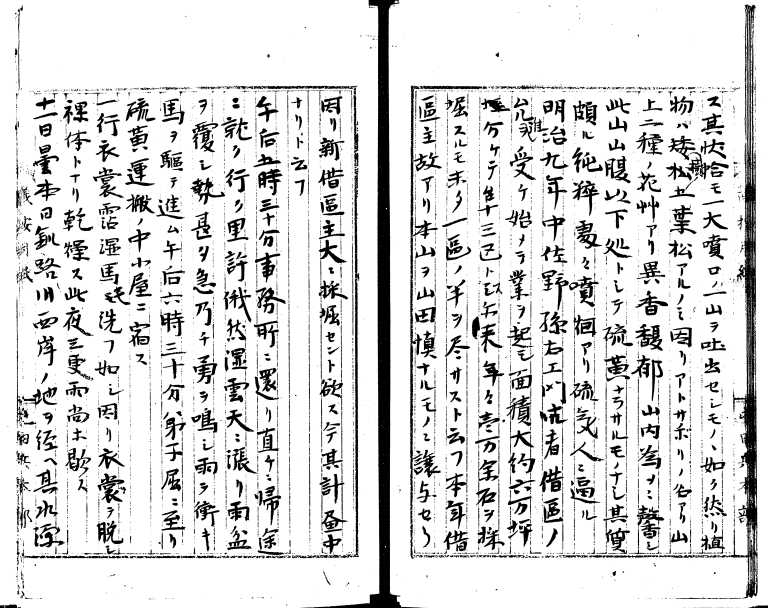 ス其状恰モ一大噴口ノ一山ヲ吐出セシモノヽ如ク然リ植
物ハ矮松五葉松アルノミ因リアトサボリノ名アリ山
上二種ノ花艸アリ異香馥郁山内為メニ馨シ
此山山腹以下処トシテ硫黄ナラサルモノナシ其質
頗ル純粹処々噴烟アリ硫気人ニ逼ル
明治九年中佐野孫右エ門ナル者借區ノ
允准ヲ受ケ始メテ業ヲ起シ面積大約六万坪
ヲ分ケテ 年々壱万余石ヲ採
堀スルモ未タ一區ノ半ヲ尽サスト云フ本年借
區主故アリ本山ヲ山田慎ナルモノニ譲与セリ
因リ新借區主大ニ採堀セント欲ス今其計畫中
ナリト云フ
午后五時三十分事務所ニ還リ直ケニ帰途
ニ就ク行ク里許俄然湿雲天ニ漲リ雨盆
ヲ覆シ勢甚タ急乃チ勇ヲ鳴シ雨ヲ衝キ
馬ヲ驅テ進ム午后六時三十分弟子屈ニ至リ
硫黄運搬ノ中小屋ニ宿ス
一行衣裳沾湿馬毛洗フ如シ因リ衣裳ヲ脱シ
裸体トナリ乾燥ス此夜三更雨尚ホ歇ス
十一日曇本日釧路川西岸ノ地ヲ經ヘ其水源